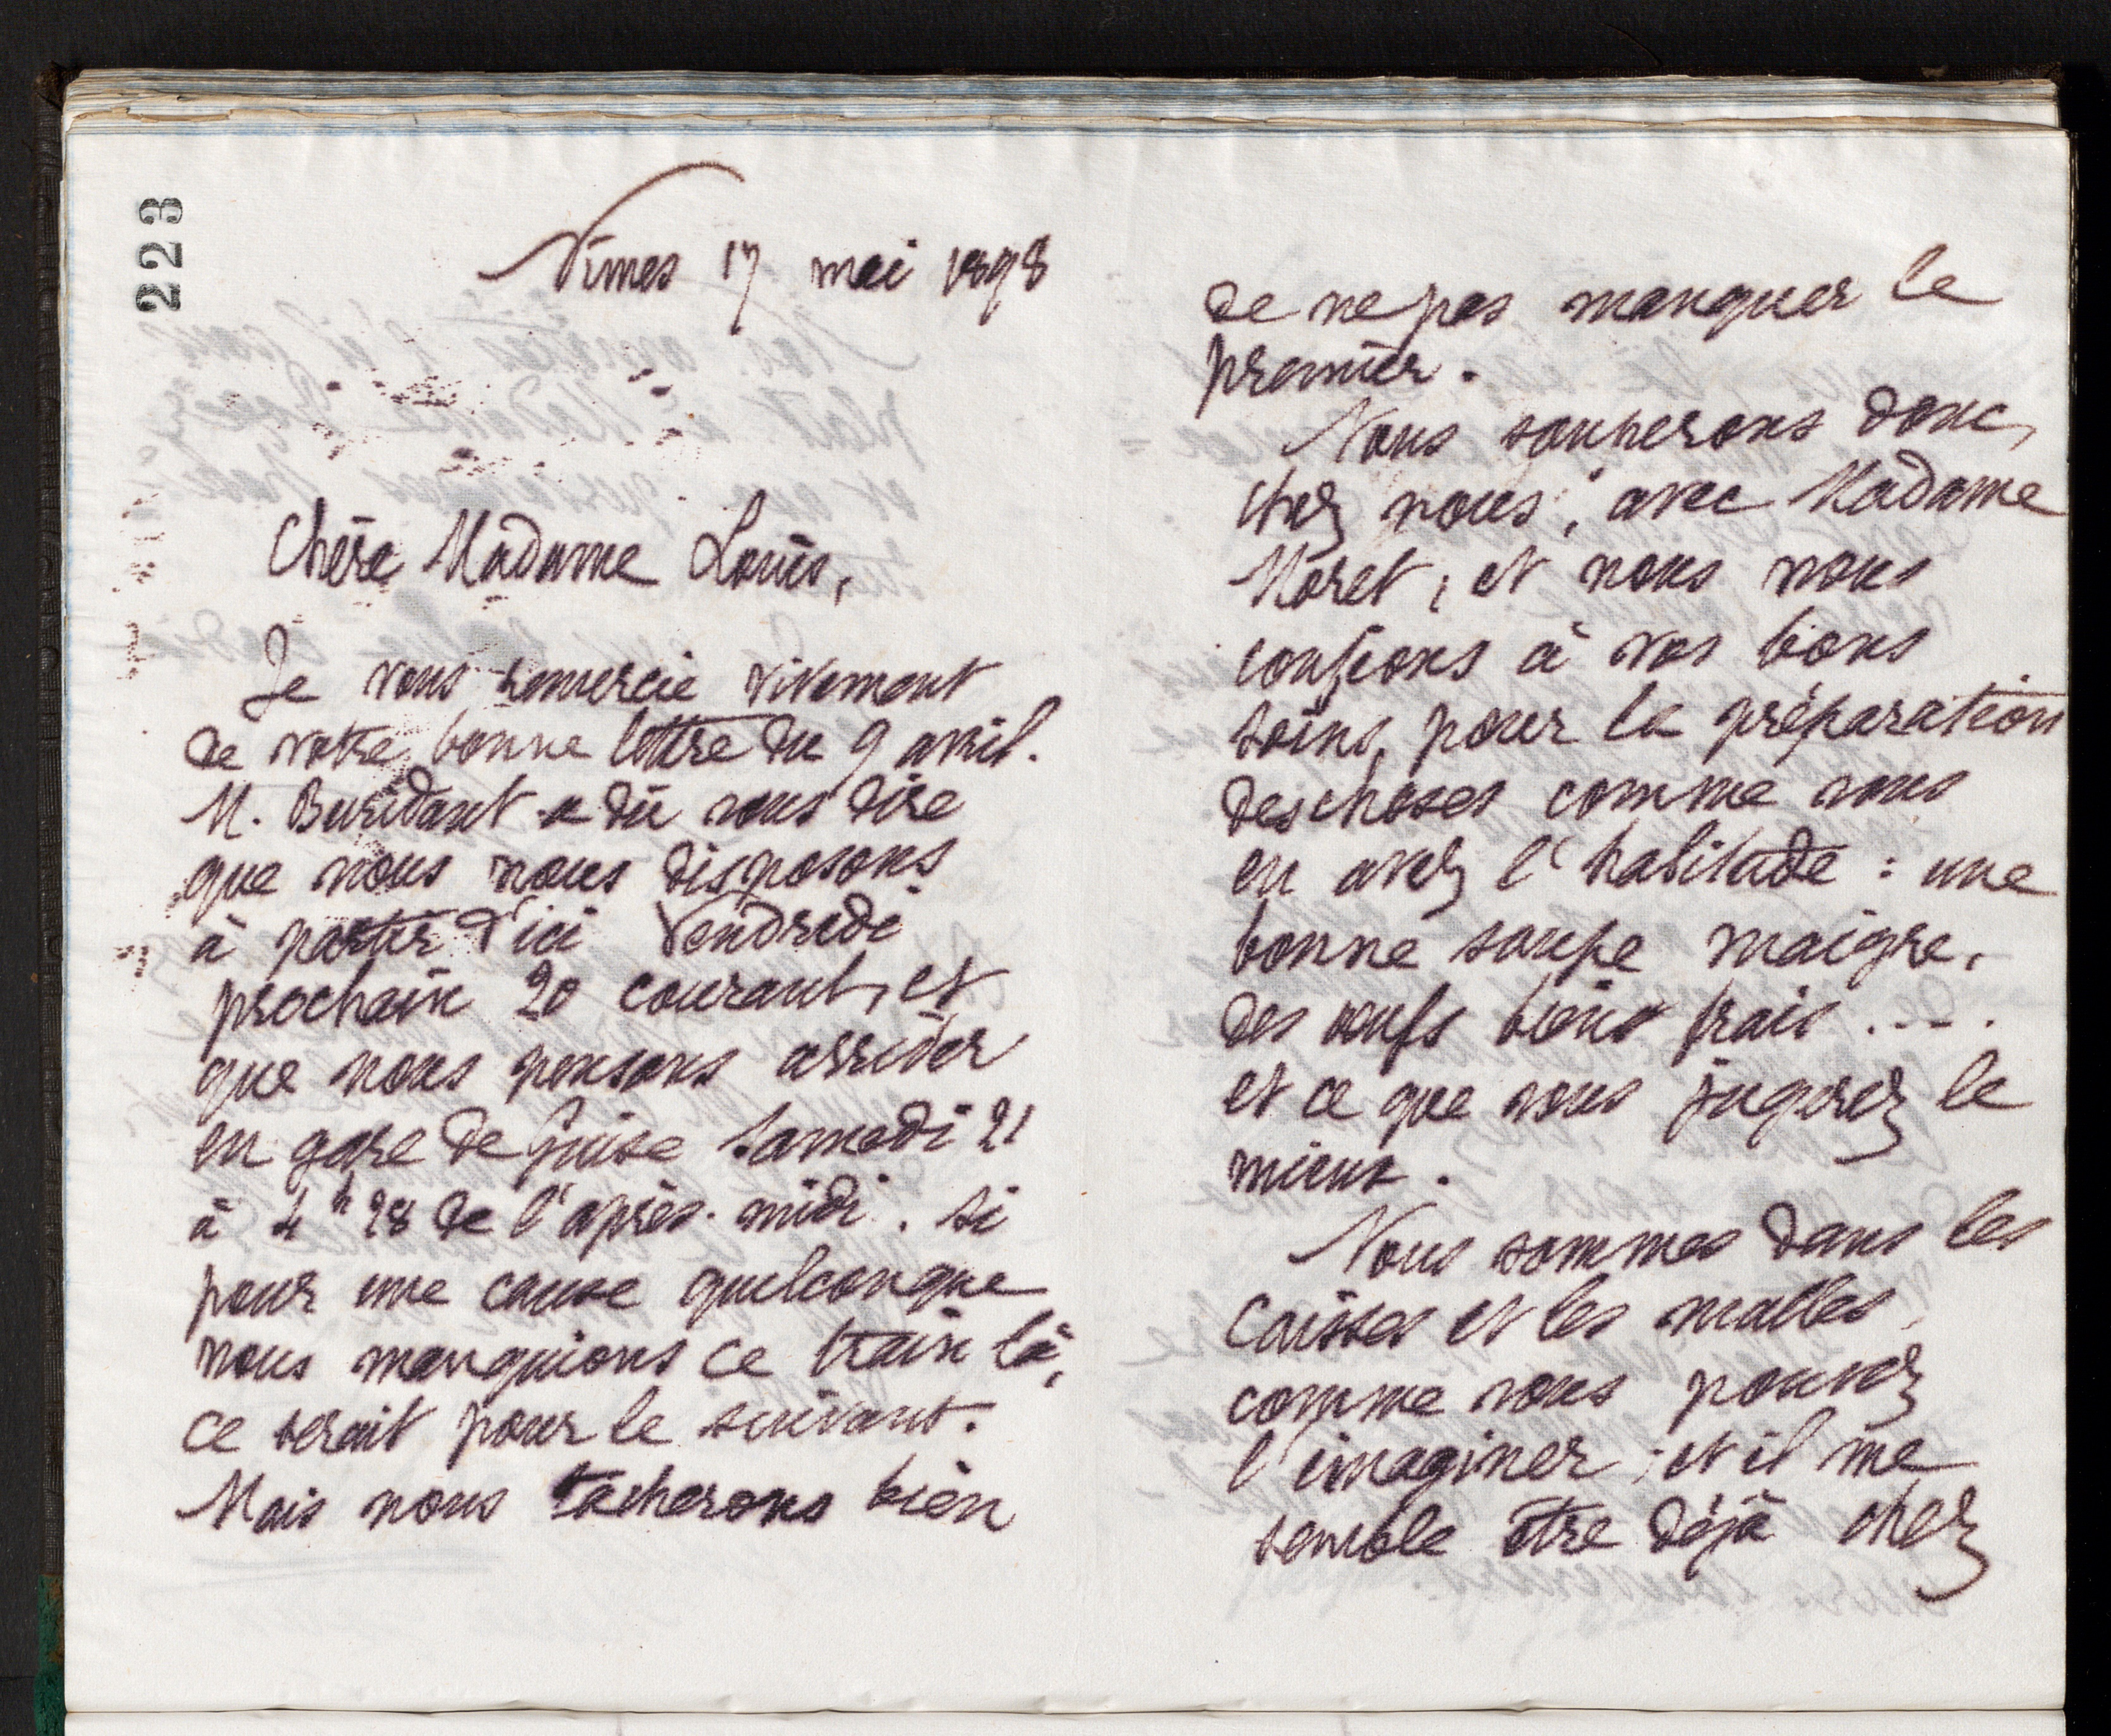 223
Nîmes 17 mai 1898
Chère Madame Louis,
Je vous remercie vivement
de votre bonne lettre du 9 avril.
M. Buridant a dû vous dire
que nous nous disposons
à partir d'ici Vendredi
prochain 20 courant, et
que nous pensons arriver
en gare de Guise Samedi 21
à 4h 28 de l'après-midi. Si
pour une cause quelconque
nous manquions ce train là,
ce serait pour le suivant.
Mais nous tâcherons bien
de ne pas manquer le
premier.
Nous souperons donc,
chez nous, avec Madame
Moret, et nous nous
confions à vos bons
soins, pour la préparation
des choses comme vous
en avez l'habitude : une
bonne soupe maigre,
des œufs bien frais ....
et ce que vous jugerez le
mieux.
Nous sommes dans les
caisses et les malles,
comme vous pouvez
l'imaginer ; et il me
semble être déjà chez